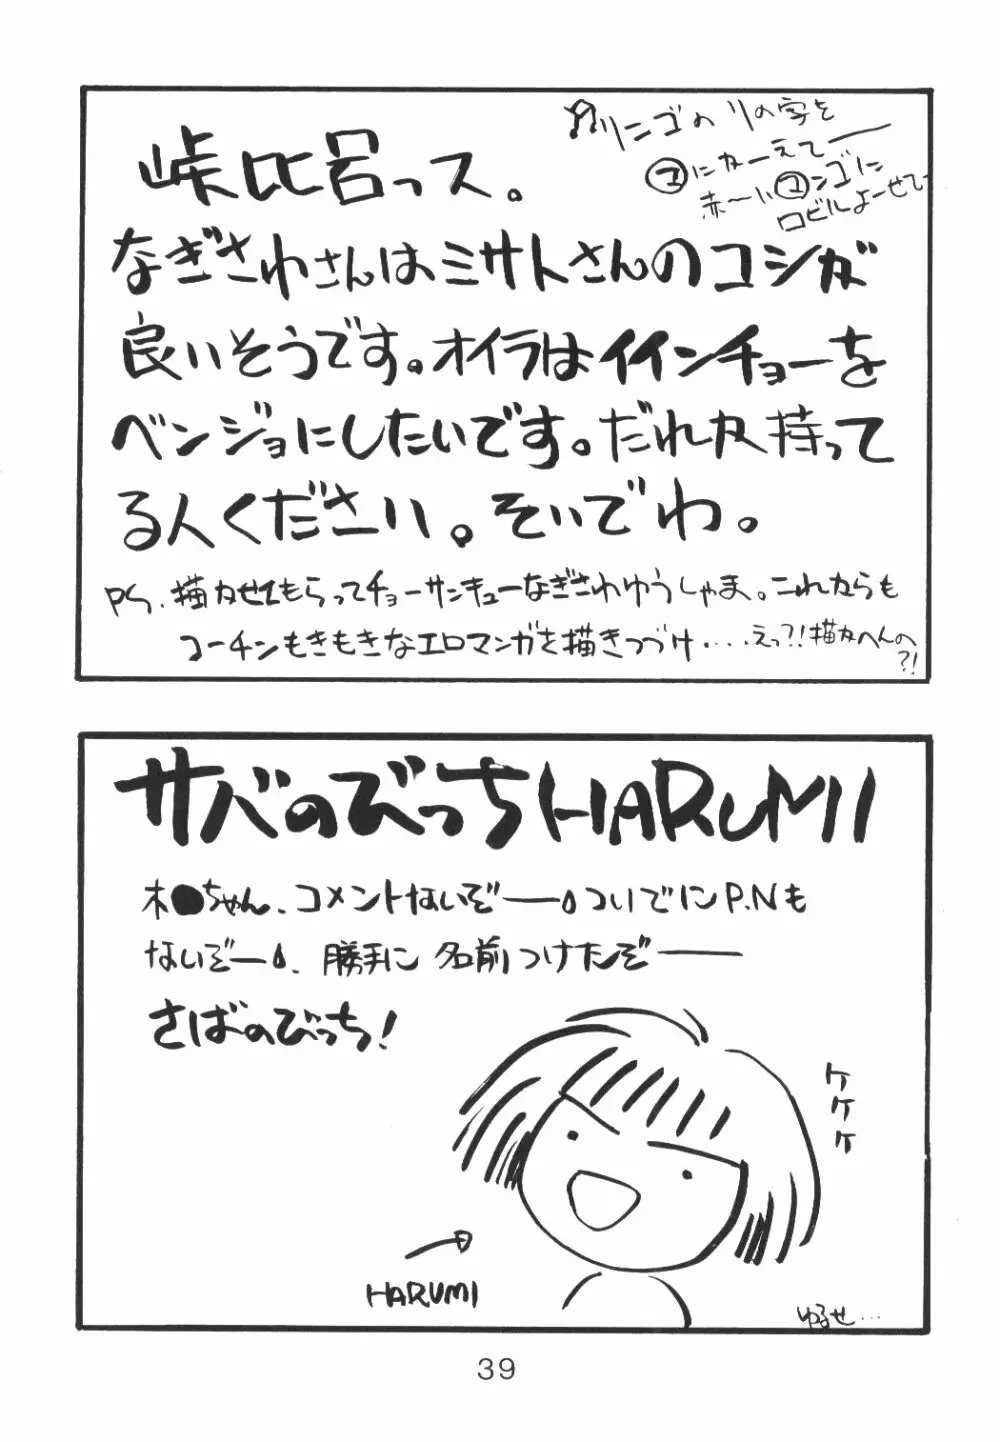 峠比呂っス。
リンゴのリの字を
㋮にかーえてー
赤〜い㋮ンゴに
口ビルよーせてー
なぎさわさんはミサトさんのコシが
良いそうです。オイラはイインチョーを
ベンジョにしたいです。だれか持って
る人ください。そいでわ。
PS.描かせてもらってチョーサンキューなぎさわゆうしゃま。これからも
コーチンもきもきなエロマンガを描きつづけ....えっ?!描かへんの
?!
サバのびっちHARUMI
木●ちゃん、コメントないぞーーついでにP.Nも
ないぞー、勝手に名前つけたぞーー
さばのびっち!
ケケケ
HARUMI
ゆるせ...
39